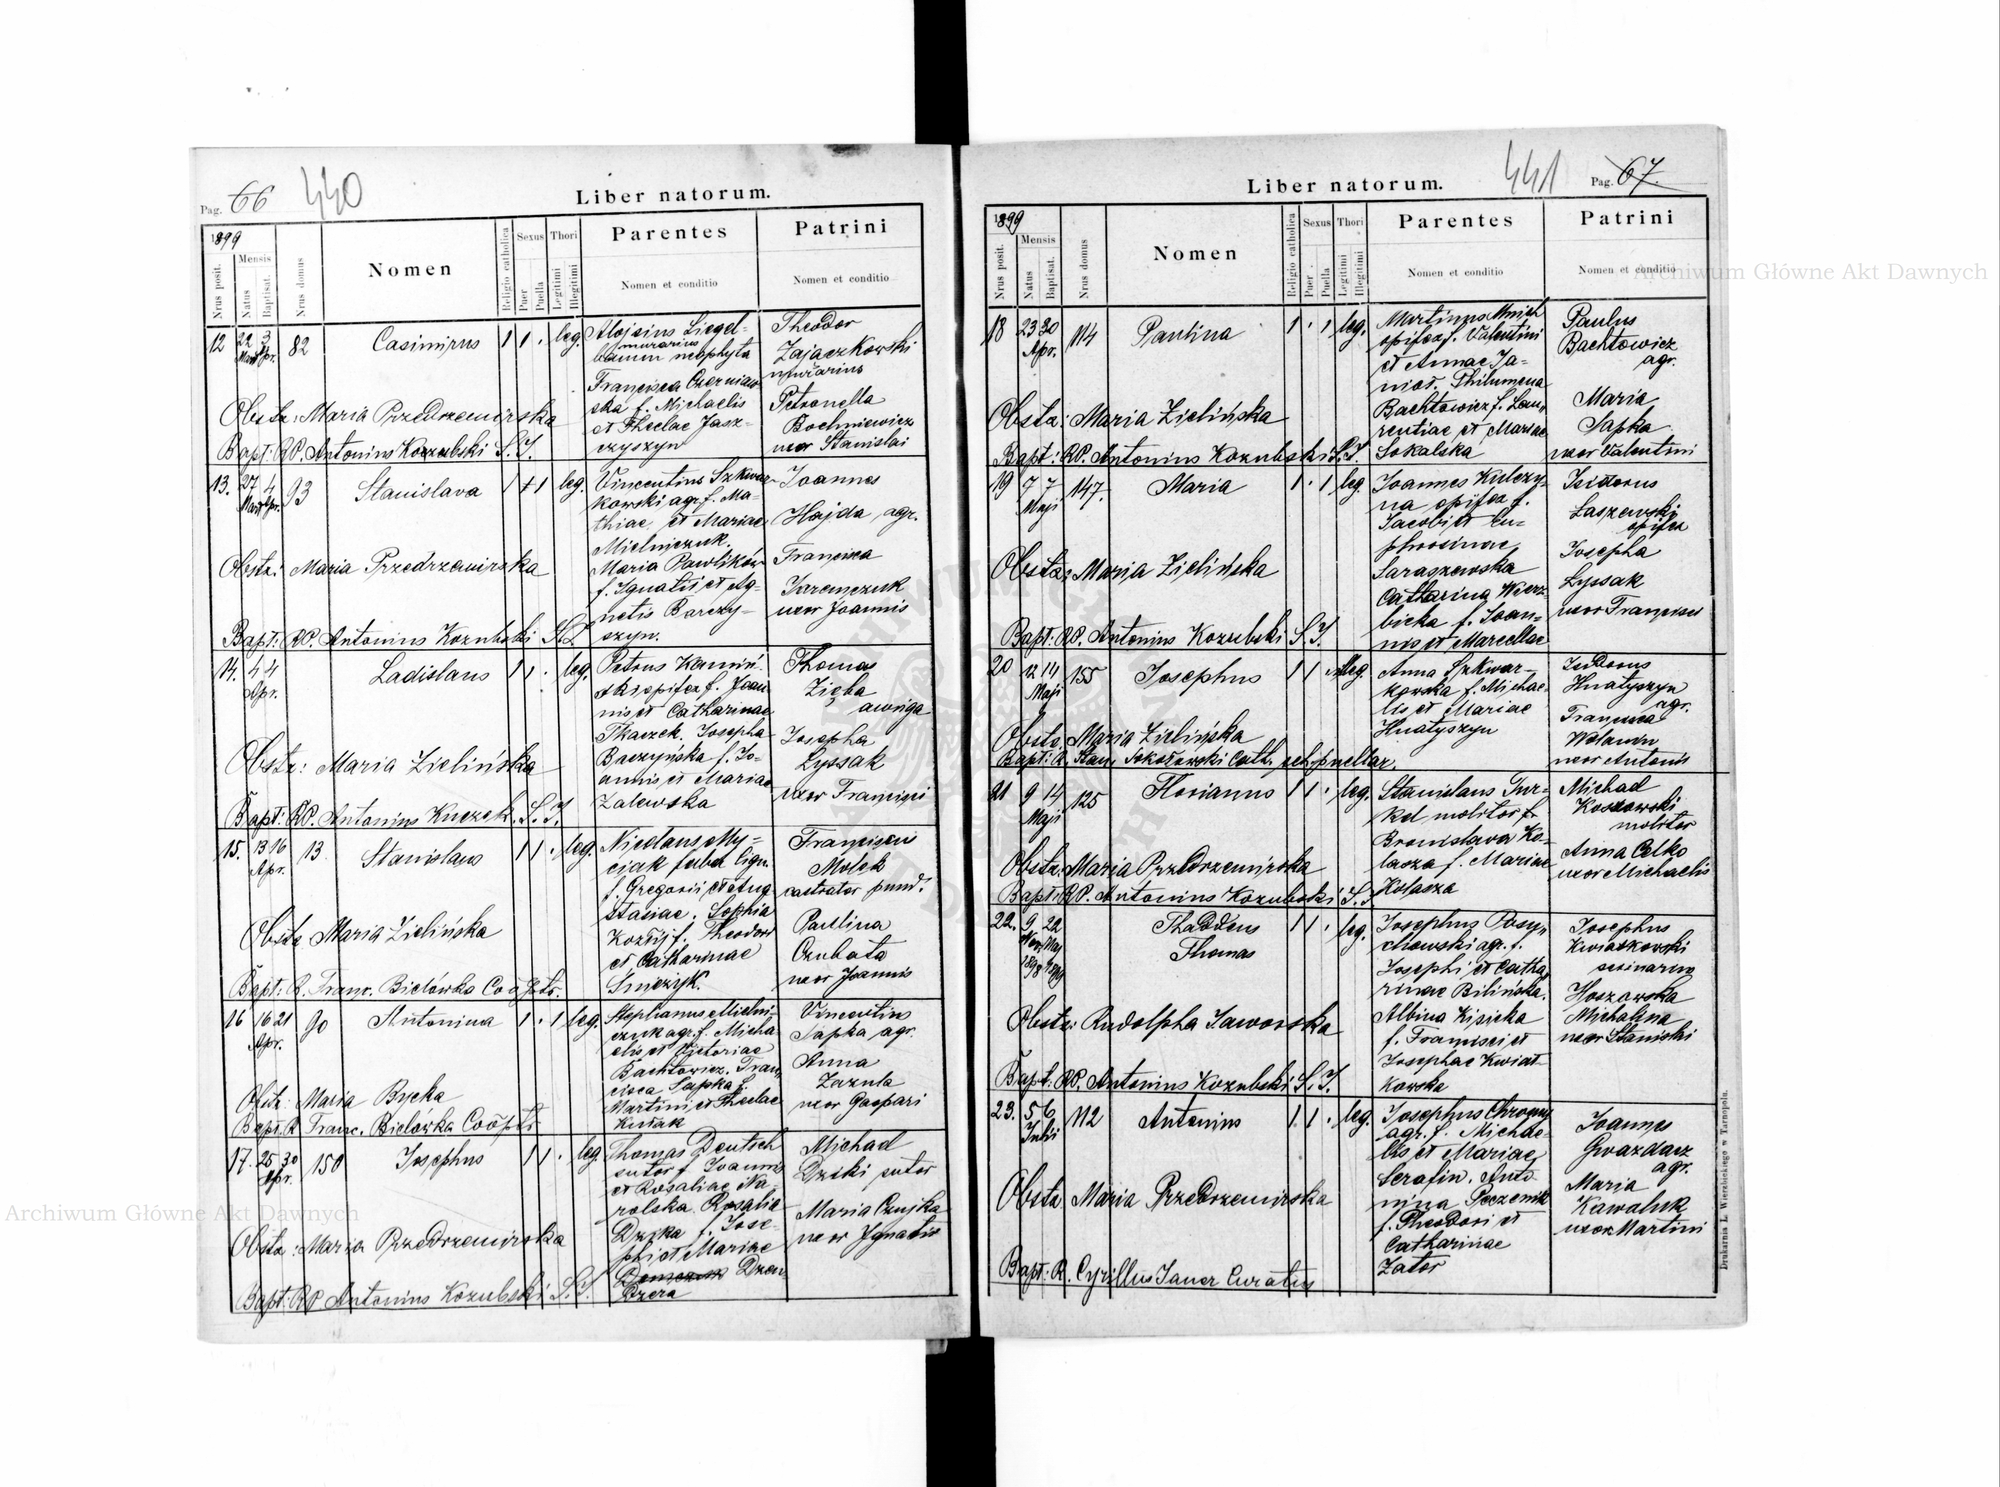 Pag. 66
440
Liber natorum.
1899
Nrus posit.
Mensis
Natus
Baptisat.
Nrus domus
Nomen
Religio catholica
Sexus
Puer
Puella
Thori
Legitimi
Illegitimi
Parentes
Nomen et conditio
Patrini
Nomen et conditio
12 22 3 82 Casimirus 1 1 . leg.
Mart. Apr.
Aloisius Liegel-
murarius
baum neophyta
Francisca Czerniaw-
ska f. Michaelis
et Theclae Jasz-
czyszyn
Theodor
Zajaczkowski
murarius
Petronella
Bochniewicz
uxor Stanislai
Obstz: Maria Przedrzemirska
Bapt: RP. Antonius Kozubski S.J.
13. 27 4 93 Stanislava 1 + 1 leg.
Mart. Apr.
Vincentius Szkwar-
kowski agr. f. Ma-
thiae et Mariae
Mielniczuk.
Maria Pawlików
f. Ignatii et Ag-
netis Barczy-
szyn.
Joannes
Hajda agr.
Francisca
Jaremczuk
uxor Joannis
Obstz: Maria Przedrzemirska
Bapt: RP. Antonius Kozubski S.J.
14. 4 4 Ladislaus 1 1 . leg.
Apr.
Petrus Kamiń-
ski opifex f. Joan-
nis et Catharinae
Tkaczek. Josepha
Baczyńska f. Jo-
annis et Mariae
Zalewska
Thomas
Zięba
auriga
Josepha
Lyssak
uxor Francisci
Obstz: Maria Zielińska
Bapt: RP. Antonius Kuczek. S.J.
15. 13 16 13 Stanislaus 1 1 . leg.
Apr.
Nicolaus My-
cjak faber lign.
f. Gregorii et Ana-
stasiae. Sophia
Kozij f. Theodori
et Catharinae
Franciscus
Molek
castrator
Paulina
uxor Joannis
Obstz Maria Zielińska
Bapt: R. Franc. Bielówka Coop
16 16 21 90 Antonina 1 . 1 leg.
Apr.
Stephanus Mielni-
czuk agr. f. Micha
elis et Victoriae
Bachtowicz. Fran-
cisca Sapka f.
Martini et Theclae
Kutak
Vincentius
Sapka agr.
Anna
Zazula
uxor Gaspari
Obstz: Maria Bycka
Bapt. R Franc. Bielówka Coop
17. 25 30 150 Josephus 1 1 . leg.
Apr.
Thomas Deutsch
sutor f. Joannis
et Rosaliae Na-
rolska. Rosalia
Dzika f. Jose-
phi et Mariae
Michael
Dziki sutor
Maria
uxor Ignatii
Obstz: Maria Przedrzemirska
Bapt: RP Antonius Kozubski S.J.
Liber natorum.
441
Pag. 67.
1899
Nrus posit.
Mensis
Natus
Baptisat.
Nrus domus
Nomen
Religio catholica
Sexus
Puer
Puella
Thori
Legitimi
Illegitimi
Parentes
Nomen et conditio
Patrini
Nomen et conditio
18 23 30 114 Paulina 1 . 1 leg.
Apr.
Martinus Mnich
opifex f. Valentini
et Annae Ja-
nior. Philumena
Bachtowicz f. Lau-
rentiae et Mariae
Sokalska
Paulus
Bachtowicz
agr.
Maria
Sapka
uxor Valentini
Obstz: Maria Zielińska
Bapt: RP. Antonius Kozubski S.J.
19 7 7 147. Maria 1 . 1 leg.
Maji
Joannes Kulczy-
na opifex f.
Jacobi et Eu-
phrosinae
Saraszewska
Catharina Wierz-
bicka f. Joan-
nis et Marcellae
Isidorus
Laszewski
opifex
Josepha
Lyssak
uxor Francisci
Obstz: Maria Zielińska
Bapt: RP. Antonius Kozubski S.J.
20 12 14 155 Josephus 1 1 . illeg.
Maji
Anna Szkwar-
kowska f. Michae-
lis et Mariae
Hnatyszyn
Isidorus
Hnatyszyn
agr.
Francisca
Wolanin
uxor Antonii
Obstz. Maria Zielińska
Bapt: R. Stan. Sokołowski Cath. sch. puellar.
21 9 14 125 Florianus 1 1 . leg.
Maji
Stanislaus Tur-
kel molitor f.
Bronislava Ko-
lasza f. Mariae
Kolasza
Michael
Koszowski
molitor
Anna Celko
uxor Michaelis
Obstz: Maria Przedrzemirska
Bapt: RP. Antonius Kozubski S.J
22. 9 22 Thaddeus 1 1 . leg.
Nov. Maj
1898 1899 Thomas
Josephus Posy-
chowski agr. f.
Josephi et Catha-
rinae Bilińska.
Albina Kisicka
f. Francisci et
Josephae Kwiat-
kowska
Josephus
Kwiatkowski
Hoszowska
Michalina
uxor Stanislai
Obstz: Rudolpha Jaworska
Bapt: RP. Antonius Kozubski S.J.
23. 5 6 112 Antonius 1 1 . leg.
Julii
Josephus
agr. f. Michae-
lis et Mariae
Serafin. Anto
nina Peczeniuk
f. Theodori et
Catharinae
Zator
Joannes
Gwazdacz
agr.
Maria
Kawaluk
uxor Martini
Obstz Maria Przedrzemirska
Bapt: R. Cyrillus Janer Curatus
Drukarnia L. Wierzbickiego w Tarnopolu.
Archiwum Główne Akt Dawnych
Archiwum Główne Akt Dawnych